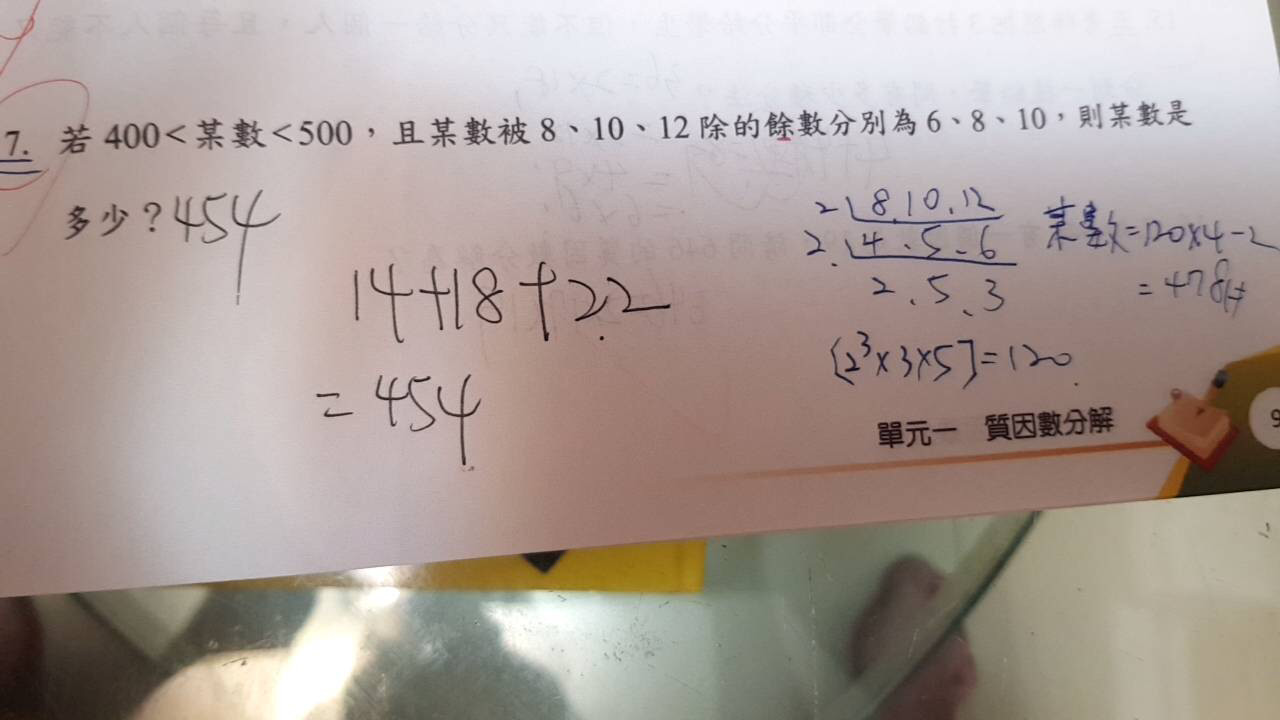 7. 若400<某數<500,且某數被8、10、12除的餘數分別為6、8、10,則某數是
多少?454
14+18+22
=454
2 8.10.12
2. 4、5、6
2、5、3
[2³×3×5]=120
某數=120×4-2
=478#
單元一 質因數分解
9